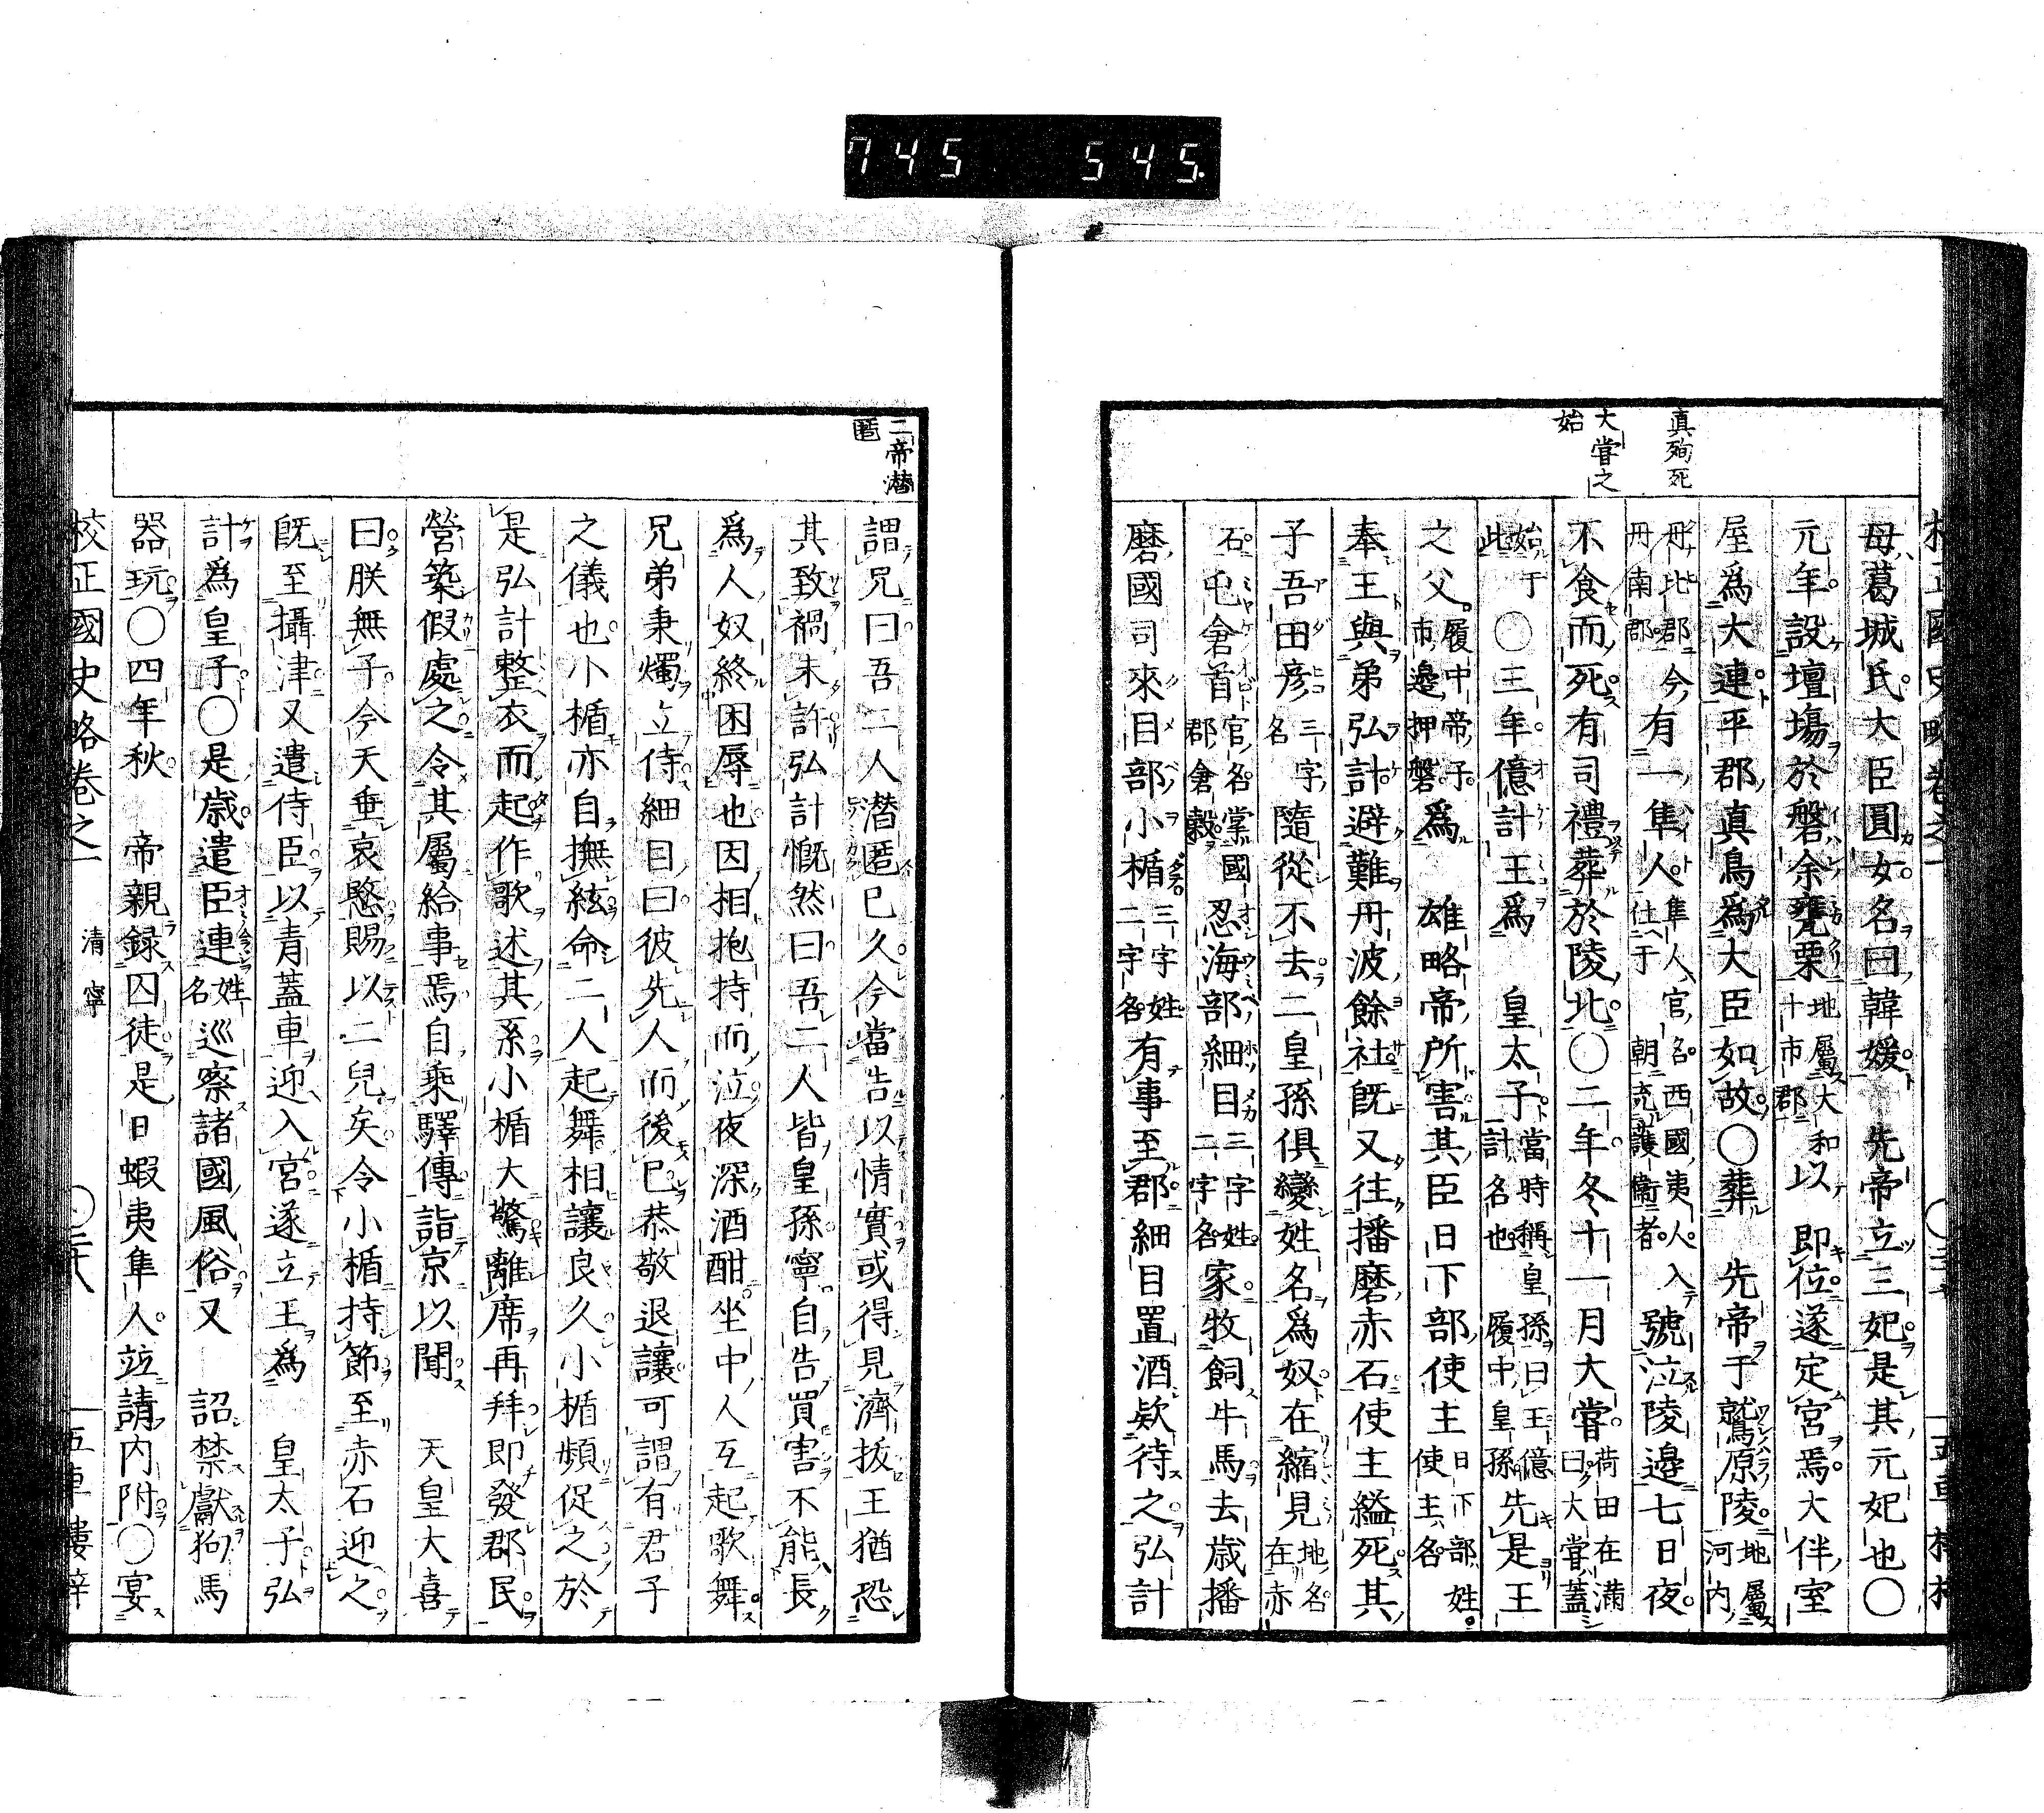 745 545.
真殉死
大嘗之
始
母葛城氏大臣圓女名曰韓媛　先帝立三妃是其元妃也〇
元年設壇場於磐余甕栗地屬大和十市郡以　即位遂定宮焉大伴室
屋爲大連平郡真鳥爲大臣如故〇葬　先帝于鷲原陵地屬河内
丹比郡今丹南郡有一隼人隼人官名西國夷人入仕于朝充護衞者號泣陵邊七日夜
不食而死有司禮葬於陵北〇二年冬十一月大嘗荷田在滿曰大嘗蓋
始于此〇三年億計王爲　皇太子當時稱皇孫曰王億計名也履中皇孫先是王
之父履中帝子市邊押磐爲　雄略帝所害其臣日下部使主日下部姓使主名
奉王與弟弘計避難丹波餘社既又往播磨赤石使主縊死其
子吾田彦三字名隨從不去二皇孫倶變姓名爲奴在縮見地名在赤
石屯倉首官名掌國郡倉穀忍海部細目三字姓二字名家牧飼牛馬去歳播
磨國司來目部小楯三字姓二字名有事至郡細目置酒欵待之弘計
二帝潜
匿
謂兄曰吾二人潜匿已久今當告以情實或得見濟拔王猶恐
其致禍未許弘計慨然曰吾二人皆皇孫寧自告買害不能長
爲人奴終困辱也因相抱持而泣夜深酒酣坐中人互起歌舞
兄弟秉燭立侍細目曰彼先人而後已恭敬退讓可謂有君子
之儀也小楯亦自撫絃命二人起舞相讓良久小楯頻促之於
是弘計整衣而起作歌述其系小楯大驚離席再拜即發郡民
營築假處之令其屬給事焉自乘驛傳詣京以聞　天皇大喜
曰朕無子今天垂哀愍賜以二兒矣令小楯持節至赤石迎之
既至攝津又遣侍臣以青蓋車迎入宮遂立王爲　皇太子弘
計爲皇子〇是歳遣臣連姓名巡察諸國風俗又　詔禁獻狗馬
器玩〇四年秋　帝親録囚徒是日蝦夷隼人竝請内附〇宴
校正國史略卷之一　清寧